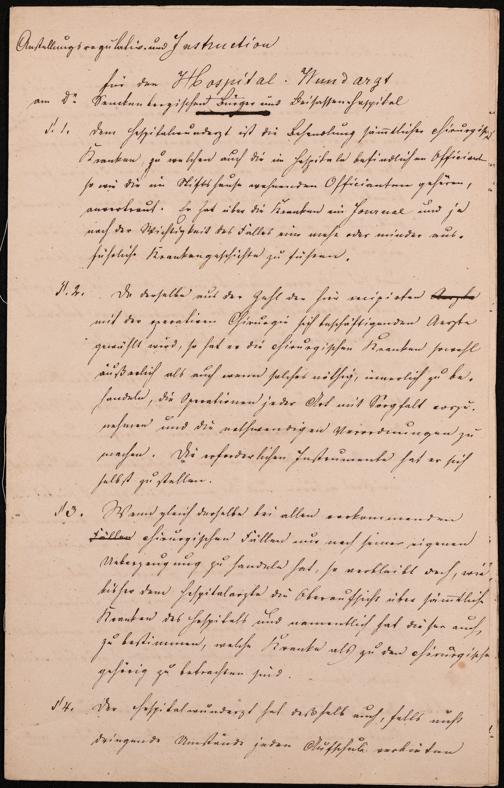 Anstellungsregulativ und Instruction
für den Hospital-Wundarzt
am Dr. Senckenbergischen Bürger und Beisassen-Hospital
§. 1. Dem Hospitalwundarzt ist die Behandlung sämmtlicher chirurgischen
Kranken, zu welchen auch die im Hospitale befindlichen Officianten
so wie die im Stiftshause wohnenden Officianten gehören,
anvertraut. Er hat über die Kranken ein Journal und je
nach der Wichtigkeit des Falles eine mehr oder minder aus-
führliche Krankengeschichte zu führen.
§. 2. Da derselbe aus der Zahl der hier recipirten Aerzte
mit der operativen Chirurgie sich beschäftigenden Aerzte
gewählt wird, so hat er die chirurgischen Kranken sowohl
äußerlich als auch wenn solches nöthig, innerlich zu be-
handeln, die Operationen jeder Art mit Sorgfalt vorzu-
nehmen und die nothwendigen Verordnungen zu
machen. Die erforderlichen Instrumente hat er sich
selbst zu stellen.
§ 3. Wenn gleich derselbe bei allen vorkommenden
Fällen chirurgischen Fällen nur nach seiner eigenen
Ueberzeugung zu handeln hat, so verbleibt doch, wie
bisher dem Hospitalarzte die Oberaufsicht über sämmtliche
Kranken des Hospitals und namentlich hat dieser auch,
zu bestimmen, welche Kranke als zu den chirurgischen
gehörig zu betrachten sind.
§ 4. Der Hospitalwundarzt hat deßhalb auch, falls nicht
dringende Umstände jeden Aufschub verbieten